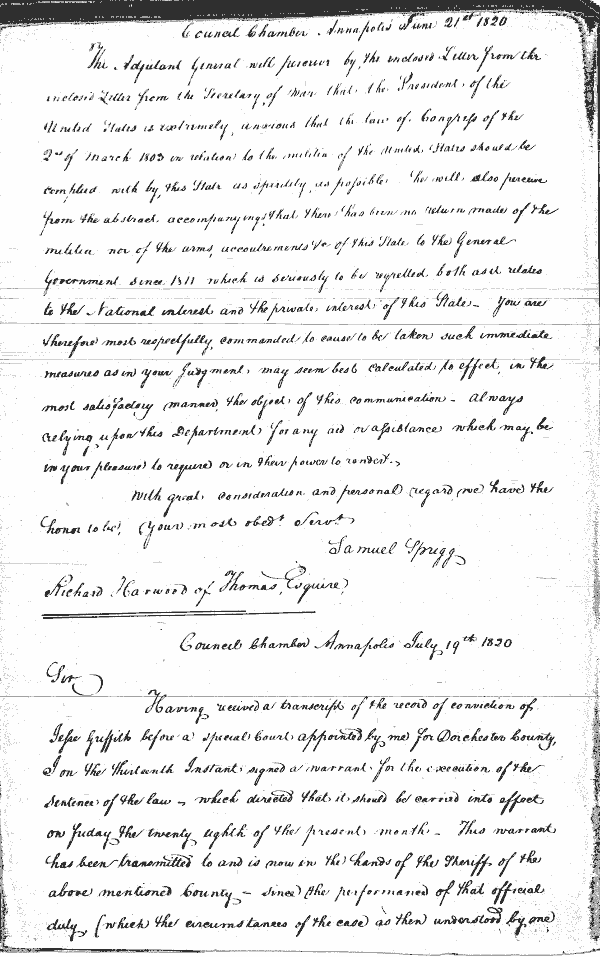 Council Chamber Annapolis June 21st 1820
The Adjutant General will perceive by the enclosed Letter from the
enclosed Letter from the Secretary of War that the President of the
United States is extremely anxious that the law of Congress of the
2nd of March 1803 in relation to the militia of the United States should be
complied with by this State as speedily as possible. he will also perceive
from the abstract accompanying that there has been no return made of the
militia nor of the arms, accoutrements &c of this State to the General
Government since 1811 which is seriously to be regretted both as it relates
to the National interest and the private interest of this State – You are
therefore most respectfully commanded to cause to be taken such immediate
measures as in your Judgment may seem best calculated to effect in the
most satisfactory manner the object of this communication – always
relying upon this Department for any aid or assistance which may be
in your pleasure to require or in their power to render.
With great consideration and personal regard we have the
honor to be, Your most obedt. Servts.
Samuel Sprigg
Richard Harwood of Thomas, Esquire,
Council Chamber Annapolis July 19th 1820
Sir
Having received a transcript of the record of conviction of
Jesse Griffith before a special Court appointed by me for Dorchester County,
I on the thirteenth Instant signed a warrant for the execution of the
sentence of the law – which directed that it should be carried into effect
on Friday the twenty eighth of the present month – This warrant
has been transmitted to and is now in the hands of the Sheriff of the
above mentioned County – since the performance of that official
duty (which the circumstances of the case as then understood by one